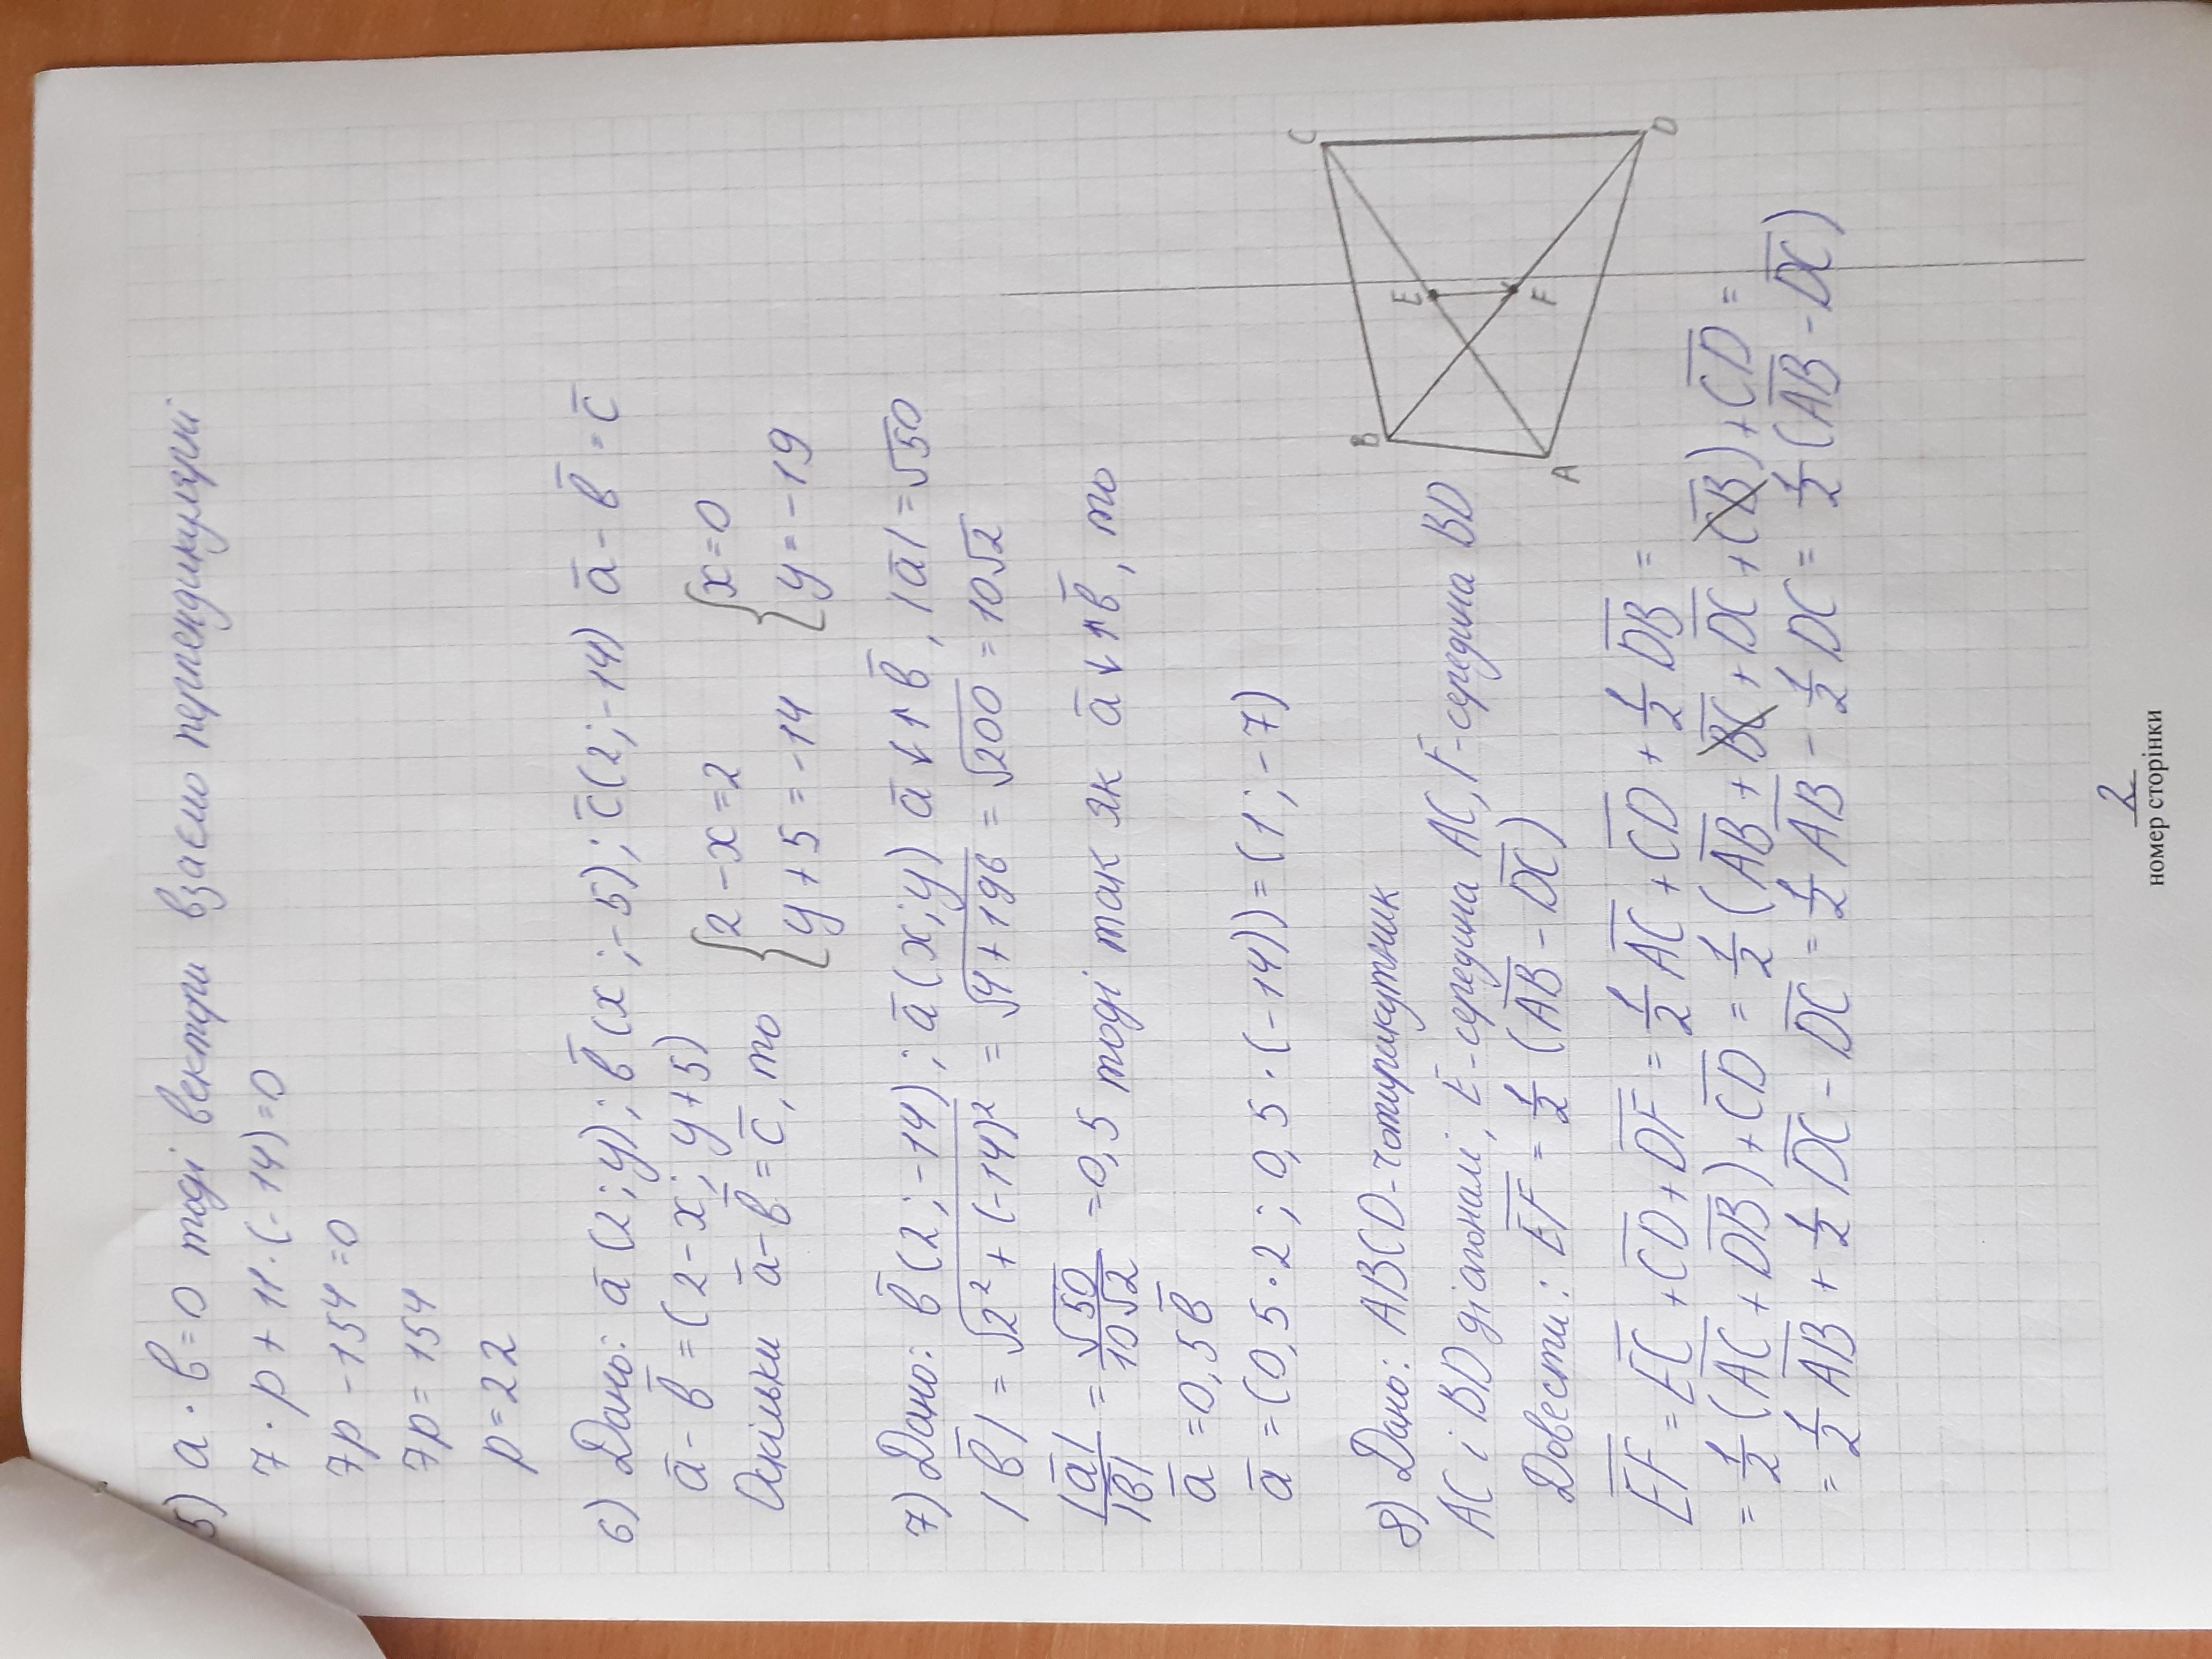 5) a · b = 0 тоді вектори взаємо перпендикулярні
7 · p + 11 · (-14) = 0
7p - 154 = 0
7p = 154
p = 22
6) Дано: a̅ (2 ; y) ; b̅ (x ; -5) ; c̅ (2 ; -14) a̅ - b̅ = c̅
a̅ - b̅ = (2 - x ; y + 5)
Оскільки a̅ - b̅ = c̅, то { 2 - x = 2 { x = 0
y + 5 = -14 y = -19
7) Дано: b̅ (2 ; -14) ; a̅ (x ; y) a̅ ↓↑ b̅ , |a̅| = √50
|b̅| = √2² + (-14)² = √4 + 196 = √200 = 10√2
|a̅|/|b̅| = √50/10√2 = 0,5 тоді так як a̅ ↓↑ b̅ , то
a̅ = 0,5 b̅
a̅ = (0,5 · 2 ; 0,5 · (-14)) = (1 ; -7)
8) Дано: ABCD - чотирикутник
AC і BD діагоналі, E - середина AC, F - середина BD
Довести: E̅F̅ = 1/2 (A̅B̅ - D̅C̅)
E̅F̅ = E̅C̅ + C̅D̅ + D̅F̅ = 1/2 A̅C̅ + C̅D̅ + 1/2 D̅B̅ =
= 1/2 (A̅C̅ + D̅B̅) + C̅D̅ = 1/2 (A̅B̅ + B̅C̅ + D̅C̅ + C̅B̅) + C̅D̅ =
= 1/2 A̅B̅ + 1/2 D̅C̅ - D̅C̅ = 1/2 A̅B̅ - 1/2 D̅C̅ = 1/2 (A̅B̅ - D̅C̅)
B
C
E
F
A
D
2
номер сторінки